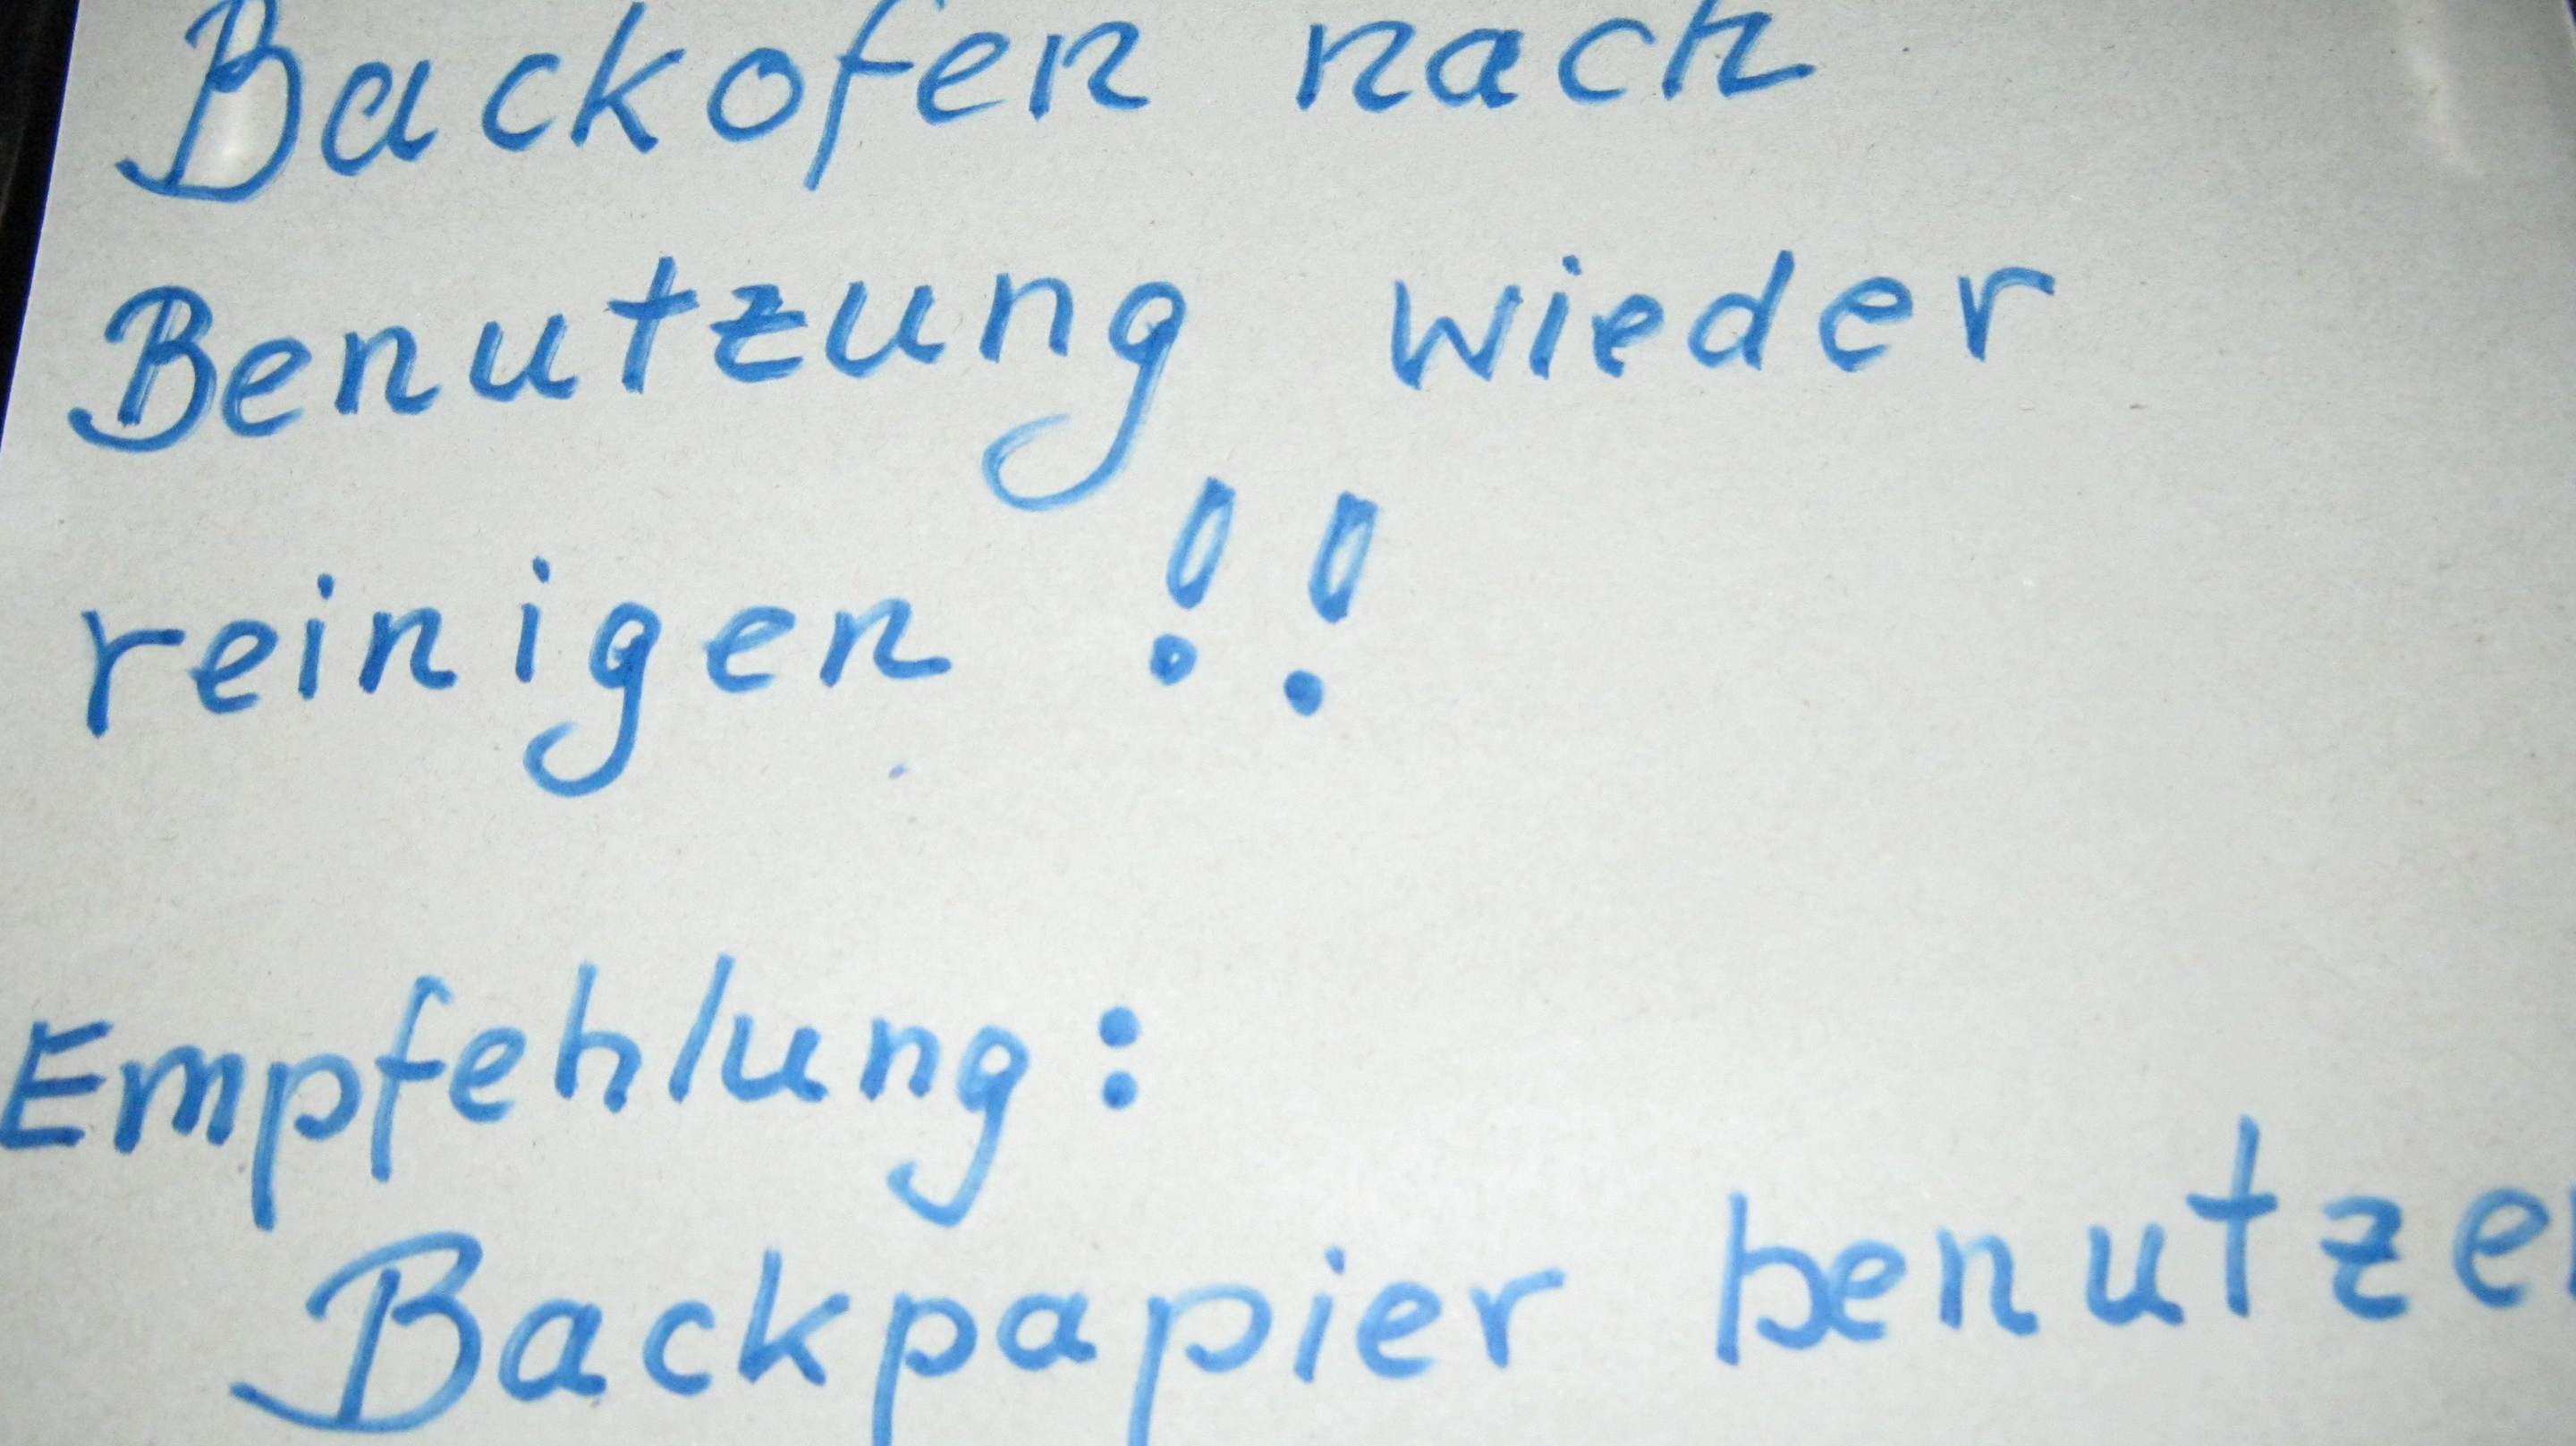 Backofen nach
Benutzung wieder
reinigen !!
Empfehlung:
Backpapier benutzen